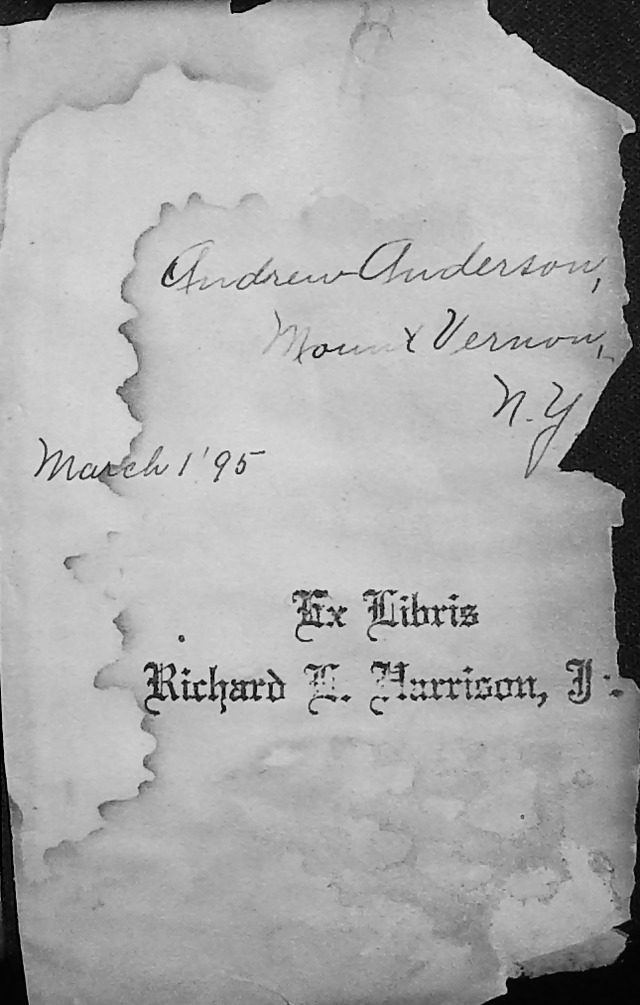 Andrew Anderson,
Mount Vernon,
N.Y
March 1 '95
Ex Libris
Richard L. Harrison, Jr.